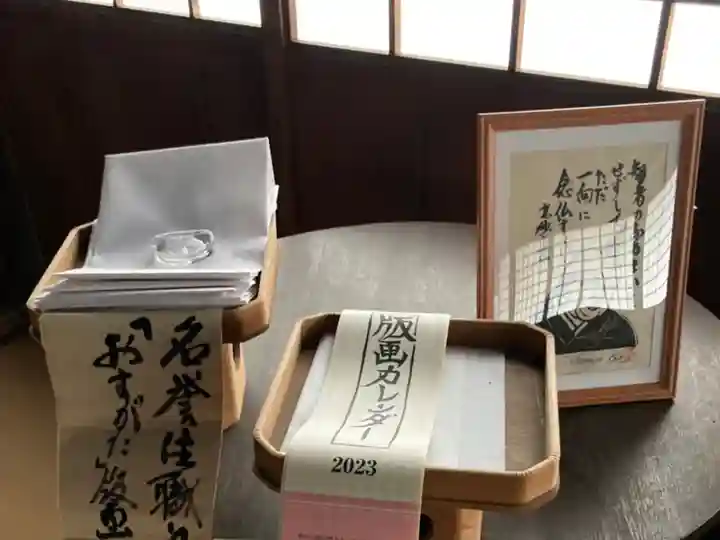 名誉住職
「おすがた」版画
版画カレンダー
2023
智者のふるまい
せずして
ただ
一向に
念仏す